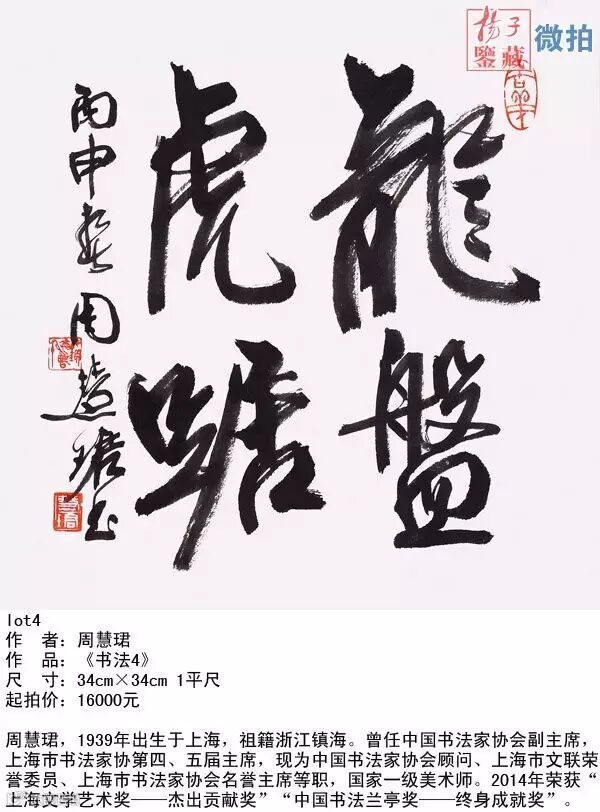 楊子
鑒藏
微拍
龍盤
虎踞
丙申春周慧珺書
lot4
作　者：周慧珺
作　品：《书法4》
尺　寸：34cm×34cm 1平尺
起拍价：16000元
周慧珺，1939年出生于上海，祖籍浙江镇海。曾任中国书法家协会副主席，
上海市书法家协第四、五届主席，现为中国书法家协会顾问、上海市文联荣
誉委员、上海市书法家协会名誉主席等职，国家一级美术师。2014年荣获“
上海文学艺术奖——杰出贡献奖”“中国书法兰亭奖——终身成就奖”。